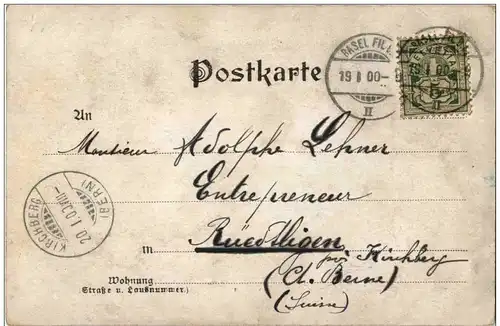 Postkarte
BASEL FIL.
19 I 00-
II
An
Monsieur Adolphe Lehner
Entrepreneur
in Rüedtligen
près Kirchberg
(Ct. Berne)
(Suisse)
KIRCHBERG
20. I. 00. VII-
(BERN)
Wohnung
(Straße u. Hausnummer.)